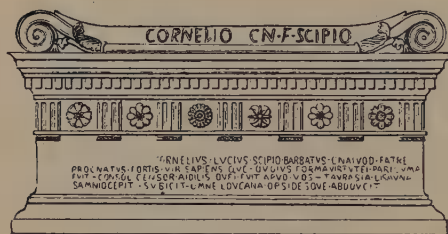 CORNELIO CN·F·SCIPIO
RNELIVS·LVCIVS·SCIPIO·BARBATVS·CNAIVOD·PATRE
PROGNATVS·FORTIS·VIR·SAPIENS QVE· FORMA VIRTVTEI·PARI
FVIT·CONSOL CENSOR·AIDILIS QVEI·FVIT APVD·VOS–TAVRASIA·
SAMNIO CEPIT–SVBIGIT·OMNE LOVCANA·OPSIDESQVE·ABDOVCIT